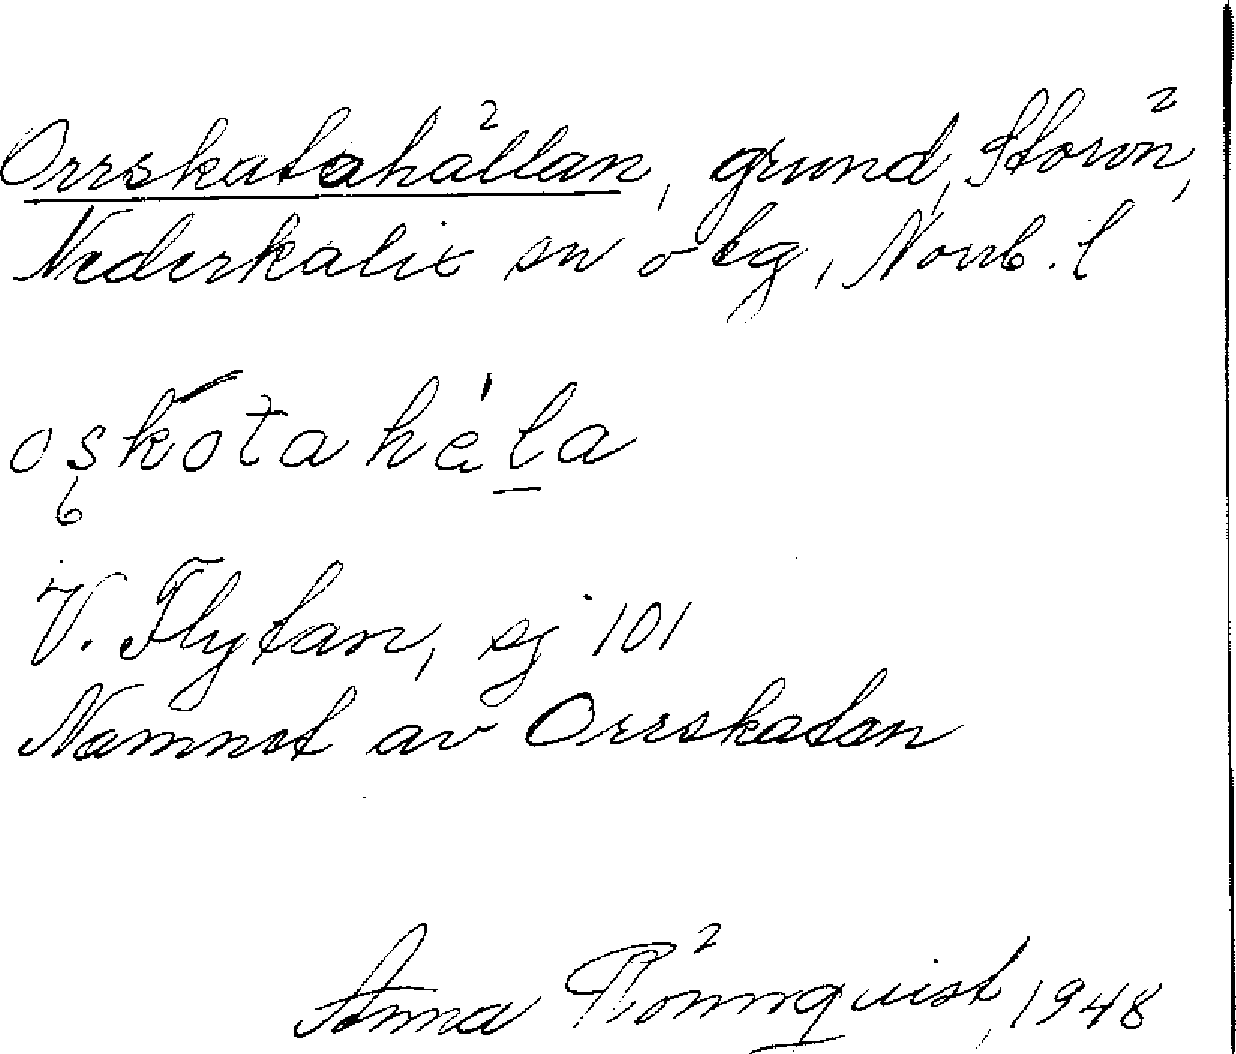 Orrskatahällan, grund, Storön,
Nederkalix sn o tg, Norrb. l
V. Flytan, sj 101
Namnet av Orrskatan
Anna Rönnqvist, 1948